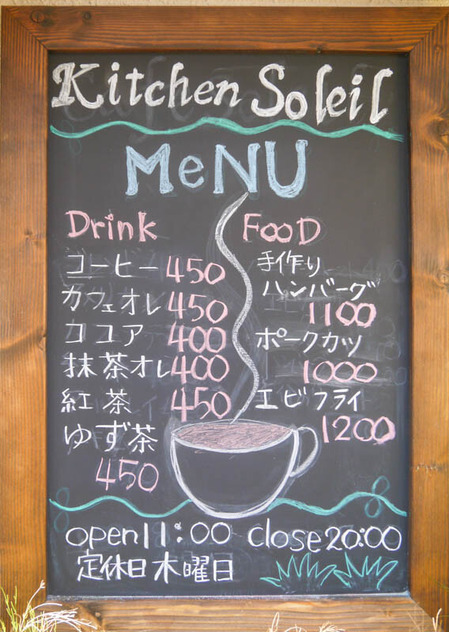 Kitchen Soleil
MeNU
Drink
コーヒー 450
カフェオレ 450
ココア 400
抹茶オレ 400
紅茶 450
ゆず茶
450
FooD
手作り
ハンバーグ
1100
ポークカツ
1000
エビフライ
1200
open 11:00 close 20:00
定休日 木曜日